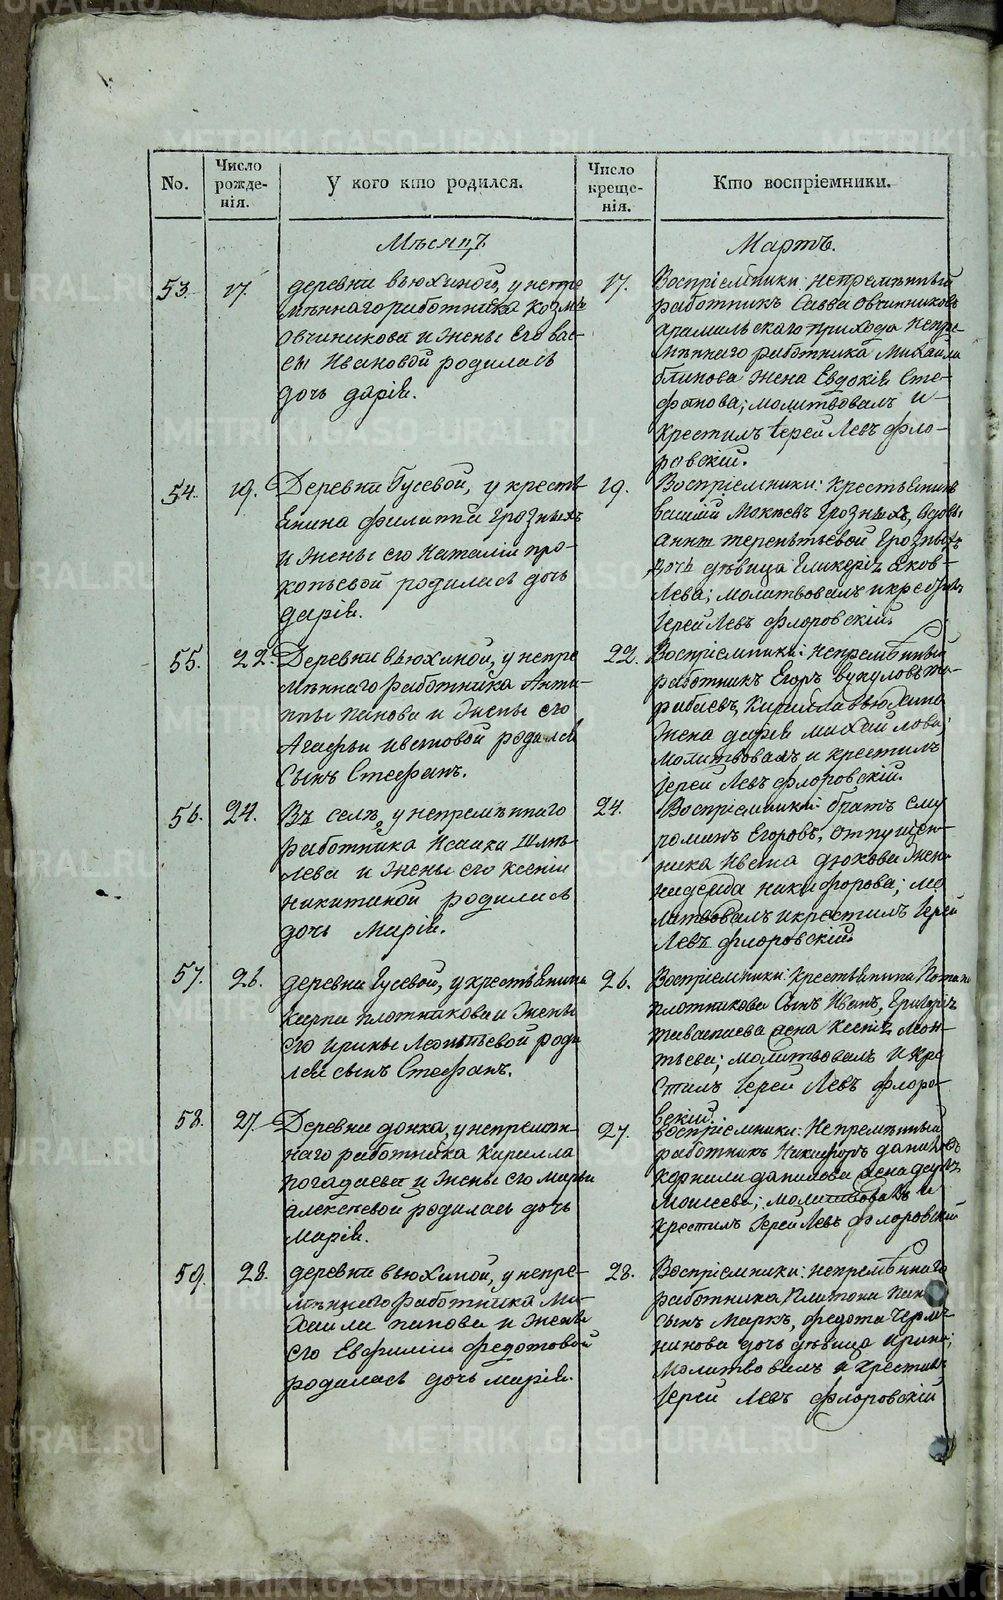 METRIKI.GASO-URAL.RU
No.
Число рожде-нія.
У кого кто родился.
Число креще-нія.
Кто воспріемники.
Мѣсяцъ
Мартъ.
53.
17.
деревни Вьюхиной, у непре
мѣннаго работника Козмы
Овчинникова и жены его Вас-
сы Ивановой родилась
дочь Дарія.
17.
Воспріемники: непремѣнный
работникъ Савва Овчинниковъ
Арамильскаго прихода непре-
мѣннаго работника Михаила
Блинова жена Евдокія Сте-
фанова; молитвовалъ и
крестилъ Іерей Левъ Фло-
ровскій.
54.
19.
Деревни Гусевой, у кресть
янина Филиппа Грозныхъ
и жены его Наталіи Про-
копьевой родилась дочь
Дарія.
19.
Воспріемники: крестьянинъ
Василій Мокѣевъ Грозныхъ, вдовы
Анны Терентьевой Грозныхъ
дочь дѣвица Гликерія Яков-
лева; молитвовалъ и крестилъ
Іерей Левъ Флоровскій.
55.
22.
Деревни Вьюхиной, у непре
мѣннаго работника Анти-
пы Панова и жены его
Агафьи Ивановой родился
сынъ Стефанъ.
22.
Воспріемники: непремѣнный
работникъ Егоръ Вукуловъ
Кирилла Вьюхина
жена Дарія Михайлова;
молитвовалъ и крестилъ
Іерей Левъ Флоровскій.
56.
24.
Въ селѣ, у непремѣннаго
работника Исаака Шмѣ-
лева и жены его Ксеніи
Никитиной родилась
дочь Марія.
24.
Воспріемники: братъ ему
Романъ Егоровъ, отпущен-
ника Ивана Дюкова жена
Надежда Никифорова; мо
литвовалъ и крестилъ Іерей
Левъ Флоровскій.
57.
26.
деревни Гусевой, у крестьянина
Карпа Плотникова и жены
его Ирины Леонтьевой роди
лся сынъ Стефанъ.
26.
Воспріемники: крестьянина Потапа
Плотникова сынъ Иванъ, Григорія
жена Ксенія Леон-
тьева; молитвовалъ и кре
стилъ Іерей Левъ Флоро-
вскій.
58.
27.
Деревни донка, у непремѣн-
наго работника Кирилла
Погадаева и жены его Марьи
Алексѣевой родилась дочь
Марія.
27.
Воспріемники: Непремѣнный
работникъ Никифоръ Даниловъ
Корнила Данилова жена Дарья
Моисеева; молитвовалъ и
крестилъ Іерей Левъ Флоровскій
59.
28.
деревни Вьюхиной, у непре-
мѣннаго работника Ми-
хаила Панова и жены
его Евфиміи Федотовой
родилась дочь Марія.
28.
Воспріемники: непремѣннаго
работника Платона Пан
сынъ Маркъ, Федота
дочь дѣвица Ирина;
молитвовалъ и крестилъ
Іерей Левъ Флоровскій